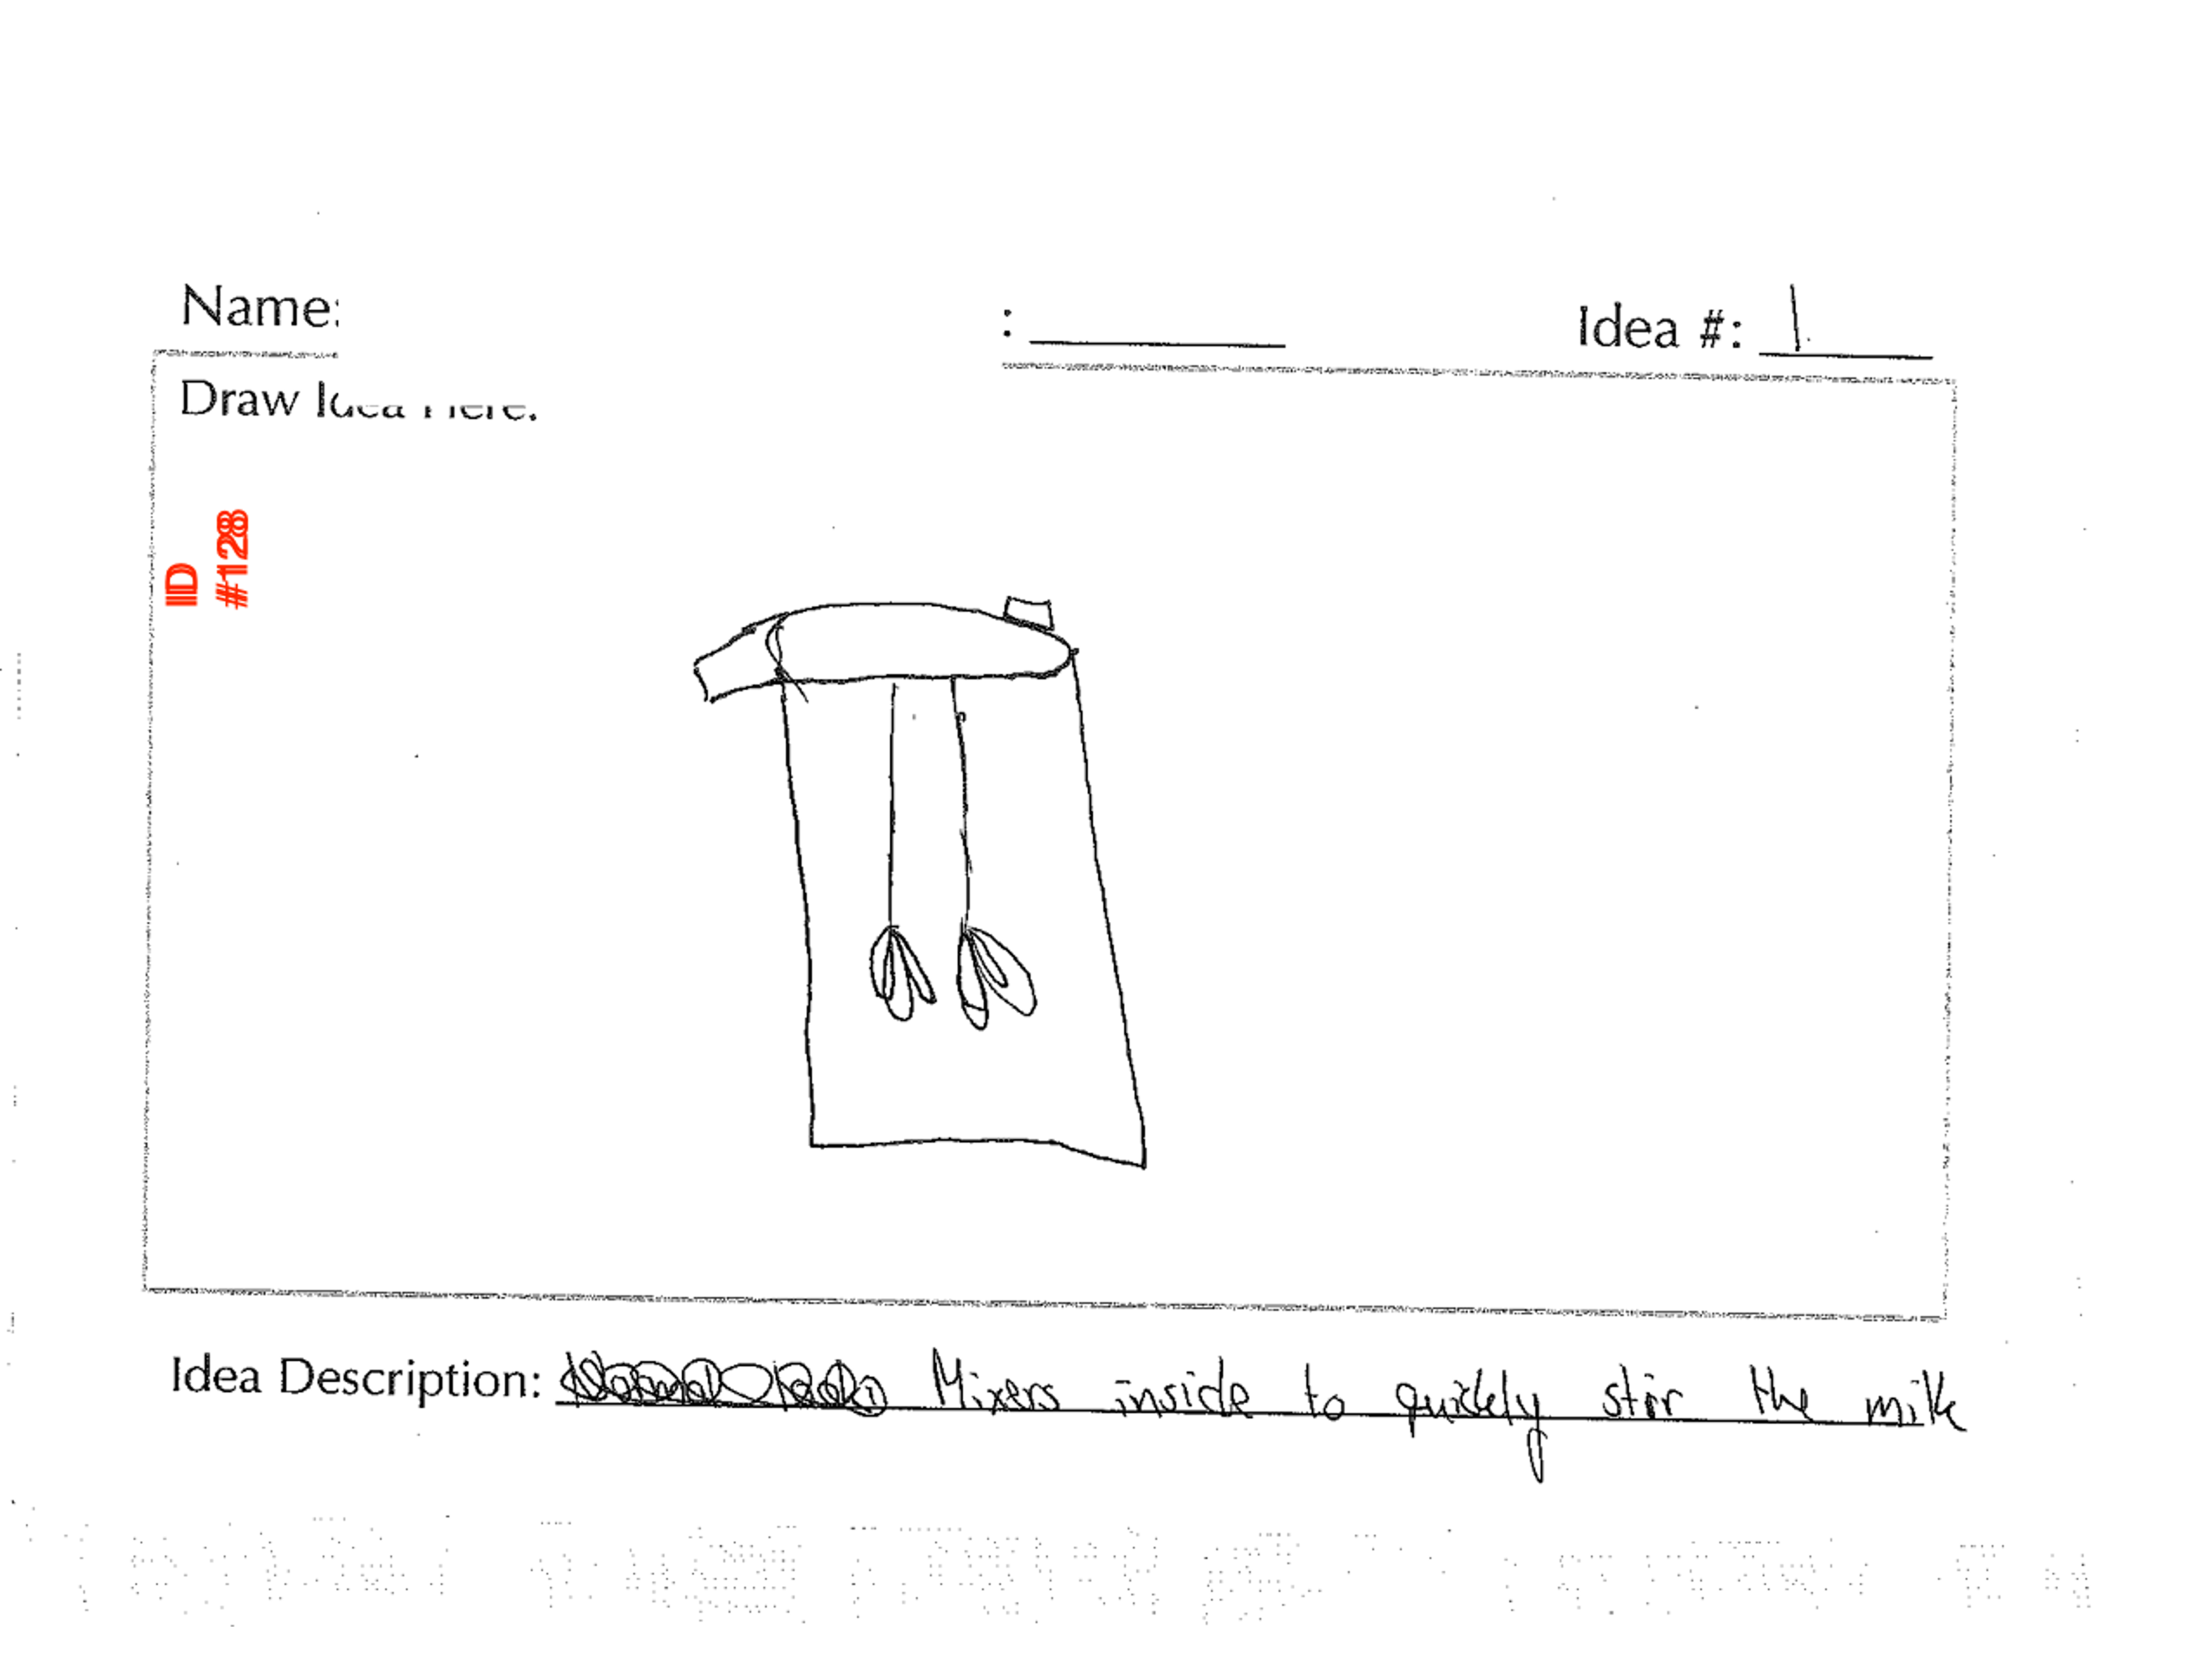 Name:
: Idea #: 1
Draw Idea Here:
ID
#128
Idea Description: Mixers inside to quickly stir the milk